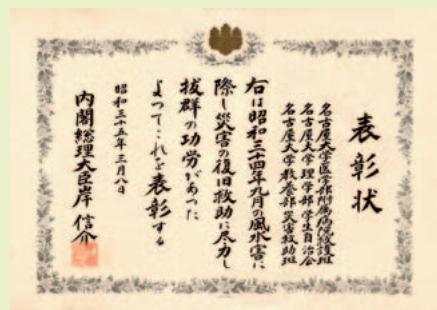 表彰状
名古屋大学医学部附属病院救護班
名古屋大学理学部学生自治会
名古屋大学教養部災害救助班
右は昭和三十四年九月の風水害に
際し災害の復旧救助に尽力し
抜群の功労があつた
よつてこれを表彰する
昭和三十五年三月八日
内閣総理大臣岸信介